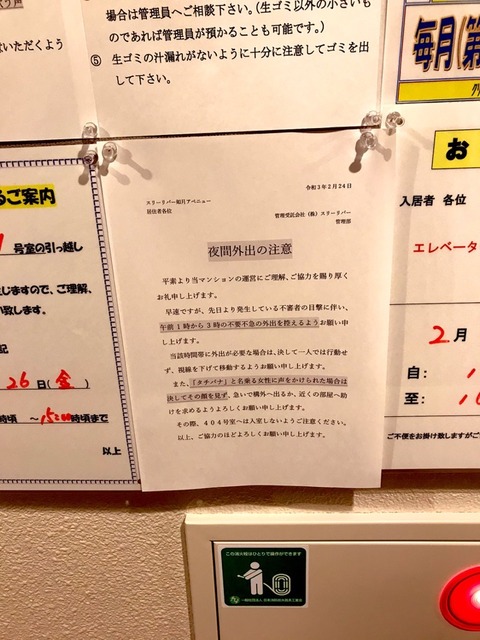 場合は管理員へご相談下さい。(生ゴミ以外の小さいも
のであれば管理員が預かることも可能です。)
⑤ 生ゴミの汁漏れがないように十分に注意してゴミを出
して下さい。
いただくよう
毎月(第
お
入居者 各位
エレベータ
2月
自:
至:
ご不便をお掛け致しますがご
るご案内
号室の引っ越し
生じますので、ご理解、
い致します。
記
26日(金)
時頃 ~15:00時頃まで
以上
令和3年2月24日
スリーリバー如月アベニュー
居住者各位
管理受託会社(株)スリーリバー
管理部
夜間外出の注意
平素より当マンションの運営にご理解、ご協力を賜り厚く
お礼申し上げます。
早速ですが、先日より発生している不審者の目撃に伴い、
午前1時から3時の不要不急の外出を控えるようお願い申
し上げます。
当該時間帯に外出が必要な場合は、決して一人では行動せ
ず、視線を下げて移動するようお願い申し上げます。
また、「タチバナ」と名乗る女性に声をかけられた場合は
決してその顔を見ず、急いで構外へ出るか、近くの部屋へ助
けを求めるようよろしくお願い申し上げます。
その際、404号室へは入室しないようご注意ください。
以上、ご協力のほどよろしくお願い申し上げます。
この消火栓はひとりで操作ができます